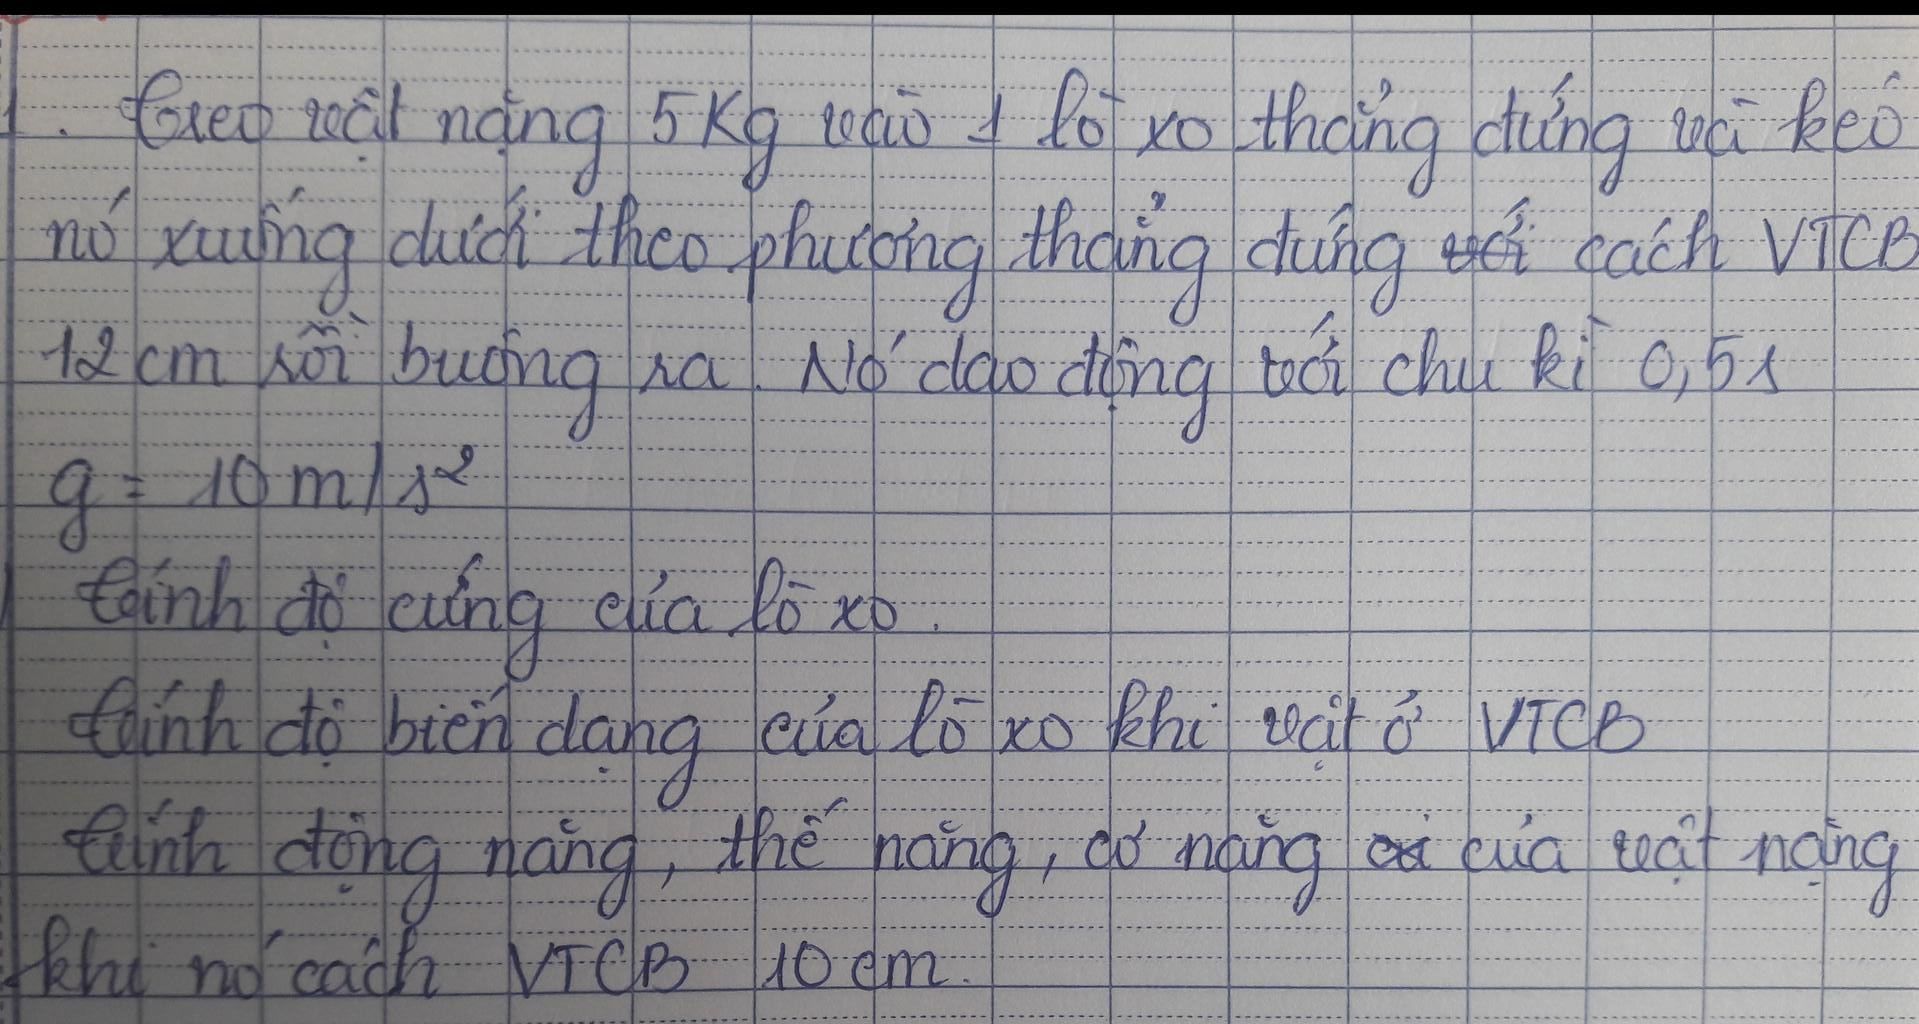 1. Treo vật nặng 5Kg vào 1 lò xo thẳng đứng và kéo
nó xuống dưới theo phương thẳng đứng cách VTCB
12 cm rồi buông ra. Nó dao động với chu kì 0,5s
g = 10 m/s²
Tính độ cứng của lò xo.
Tính độ biến dạng của lò xo khi vật ở VTCB
Tính động năng, thế năng, cơ năng của vật nặng
khi nó cách VTCB 10 cm.